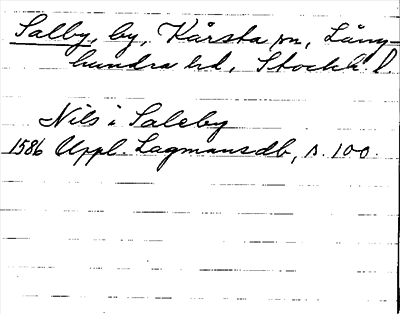 Salby, by, Kårsta sn, Lång-
hundra hd, Stockh. l.
Nils i Saleby
1586 Uppl. Lagmansdb, s. 100.